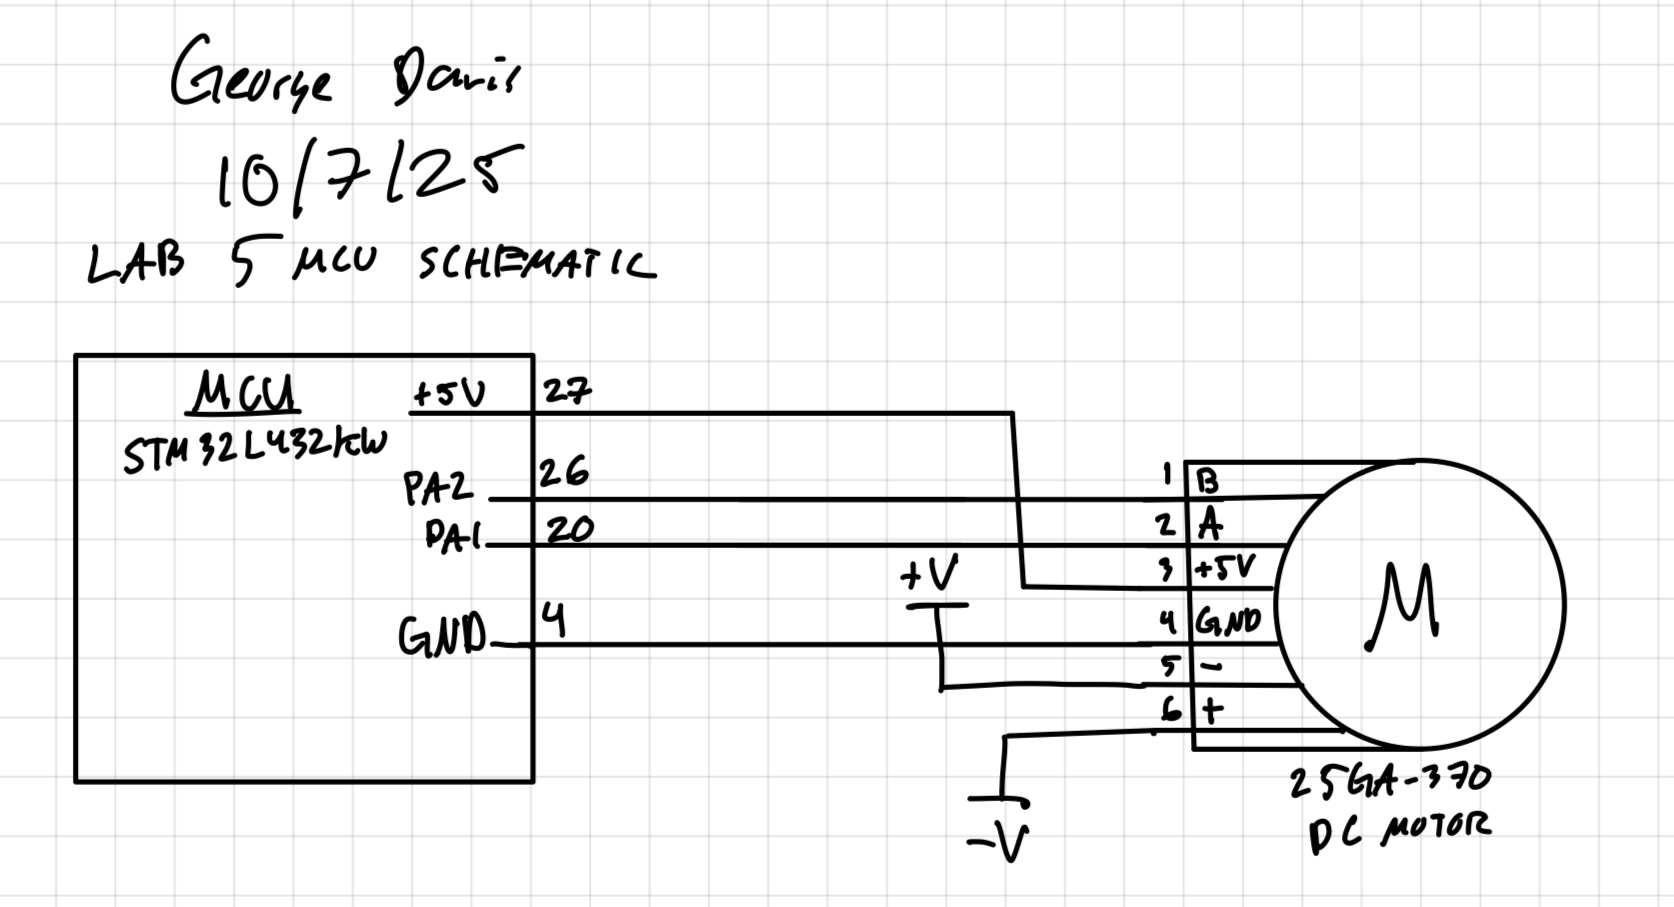 George Davis
10/7/25
LAB 5 MCU SCHEMATIC
MCU
STM32L432KW
+5V 27
PA2 26
PA1 20
GND 4
+V
-V
1 B
2 A
3 +5V
4 GND
5 -
6 +
M
25GA-370
DC MOTOR